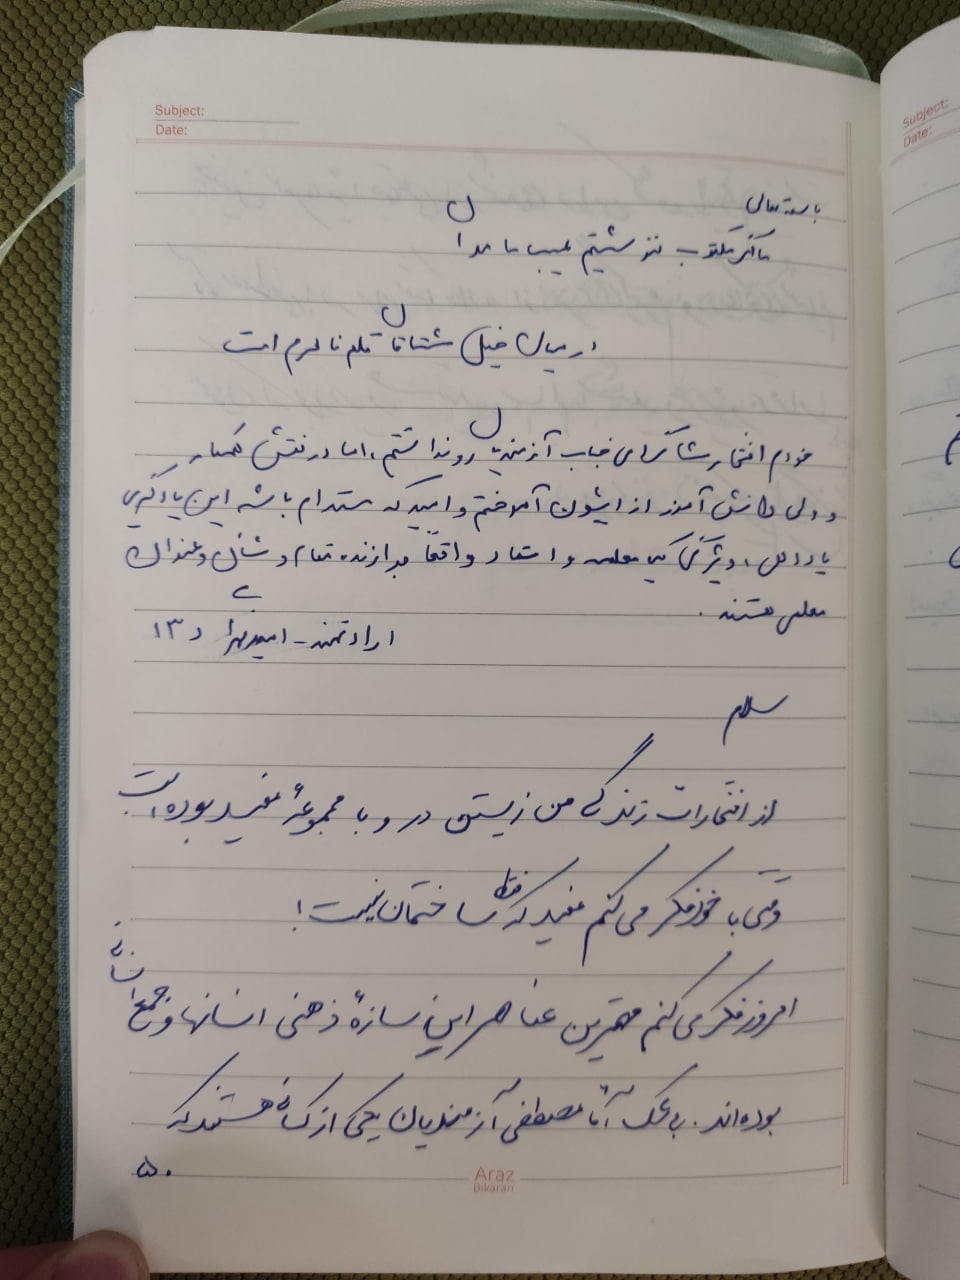 Subject:
Date:
باسمه تعالی
ما اگر مکتوب ننوشتیم عیب ما مدان
در میان خیل مشتاقان قلم نامحرم است
خودم افتخار شاگردی جناب آزمندیان رو نداشتم، اما در نقش همکار
و ولی دانش آموز از ایشون آموختم و امیدکه مستدام باشه این یادگیری
یاددهی، ویژگی یک معلمه و استاد واقعاً برازنده مقام و شأن و عنوان
معلمی هستند.
ارادتمند - امیر ۱۳
سلام
از افتخارات زندگی من زیستن در و با مجموعهٔ مفید بوده است
وقتی با خود فکر می‌کنم مفید که فقط ساختمان نیست!
امروز فکر می‌کنم مهمترین عناصر این سازهٔ ذهنی انسانها و جمع انسانی
بوده‌اند. بی‌شک آقا مصطفی آزمندیان یکی از کسانی هستند که
۵۰
Araz
Bikaran
Subject:
Date: